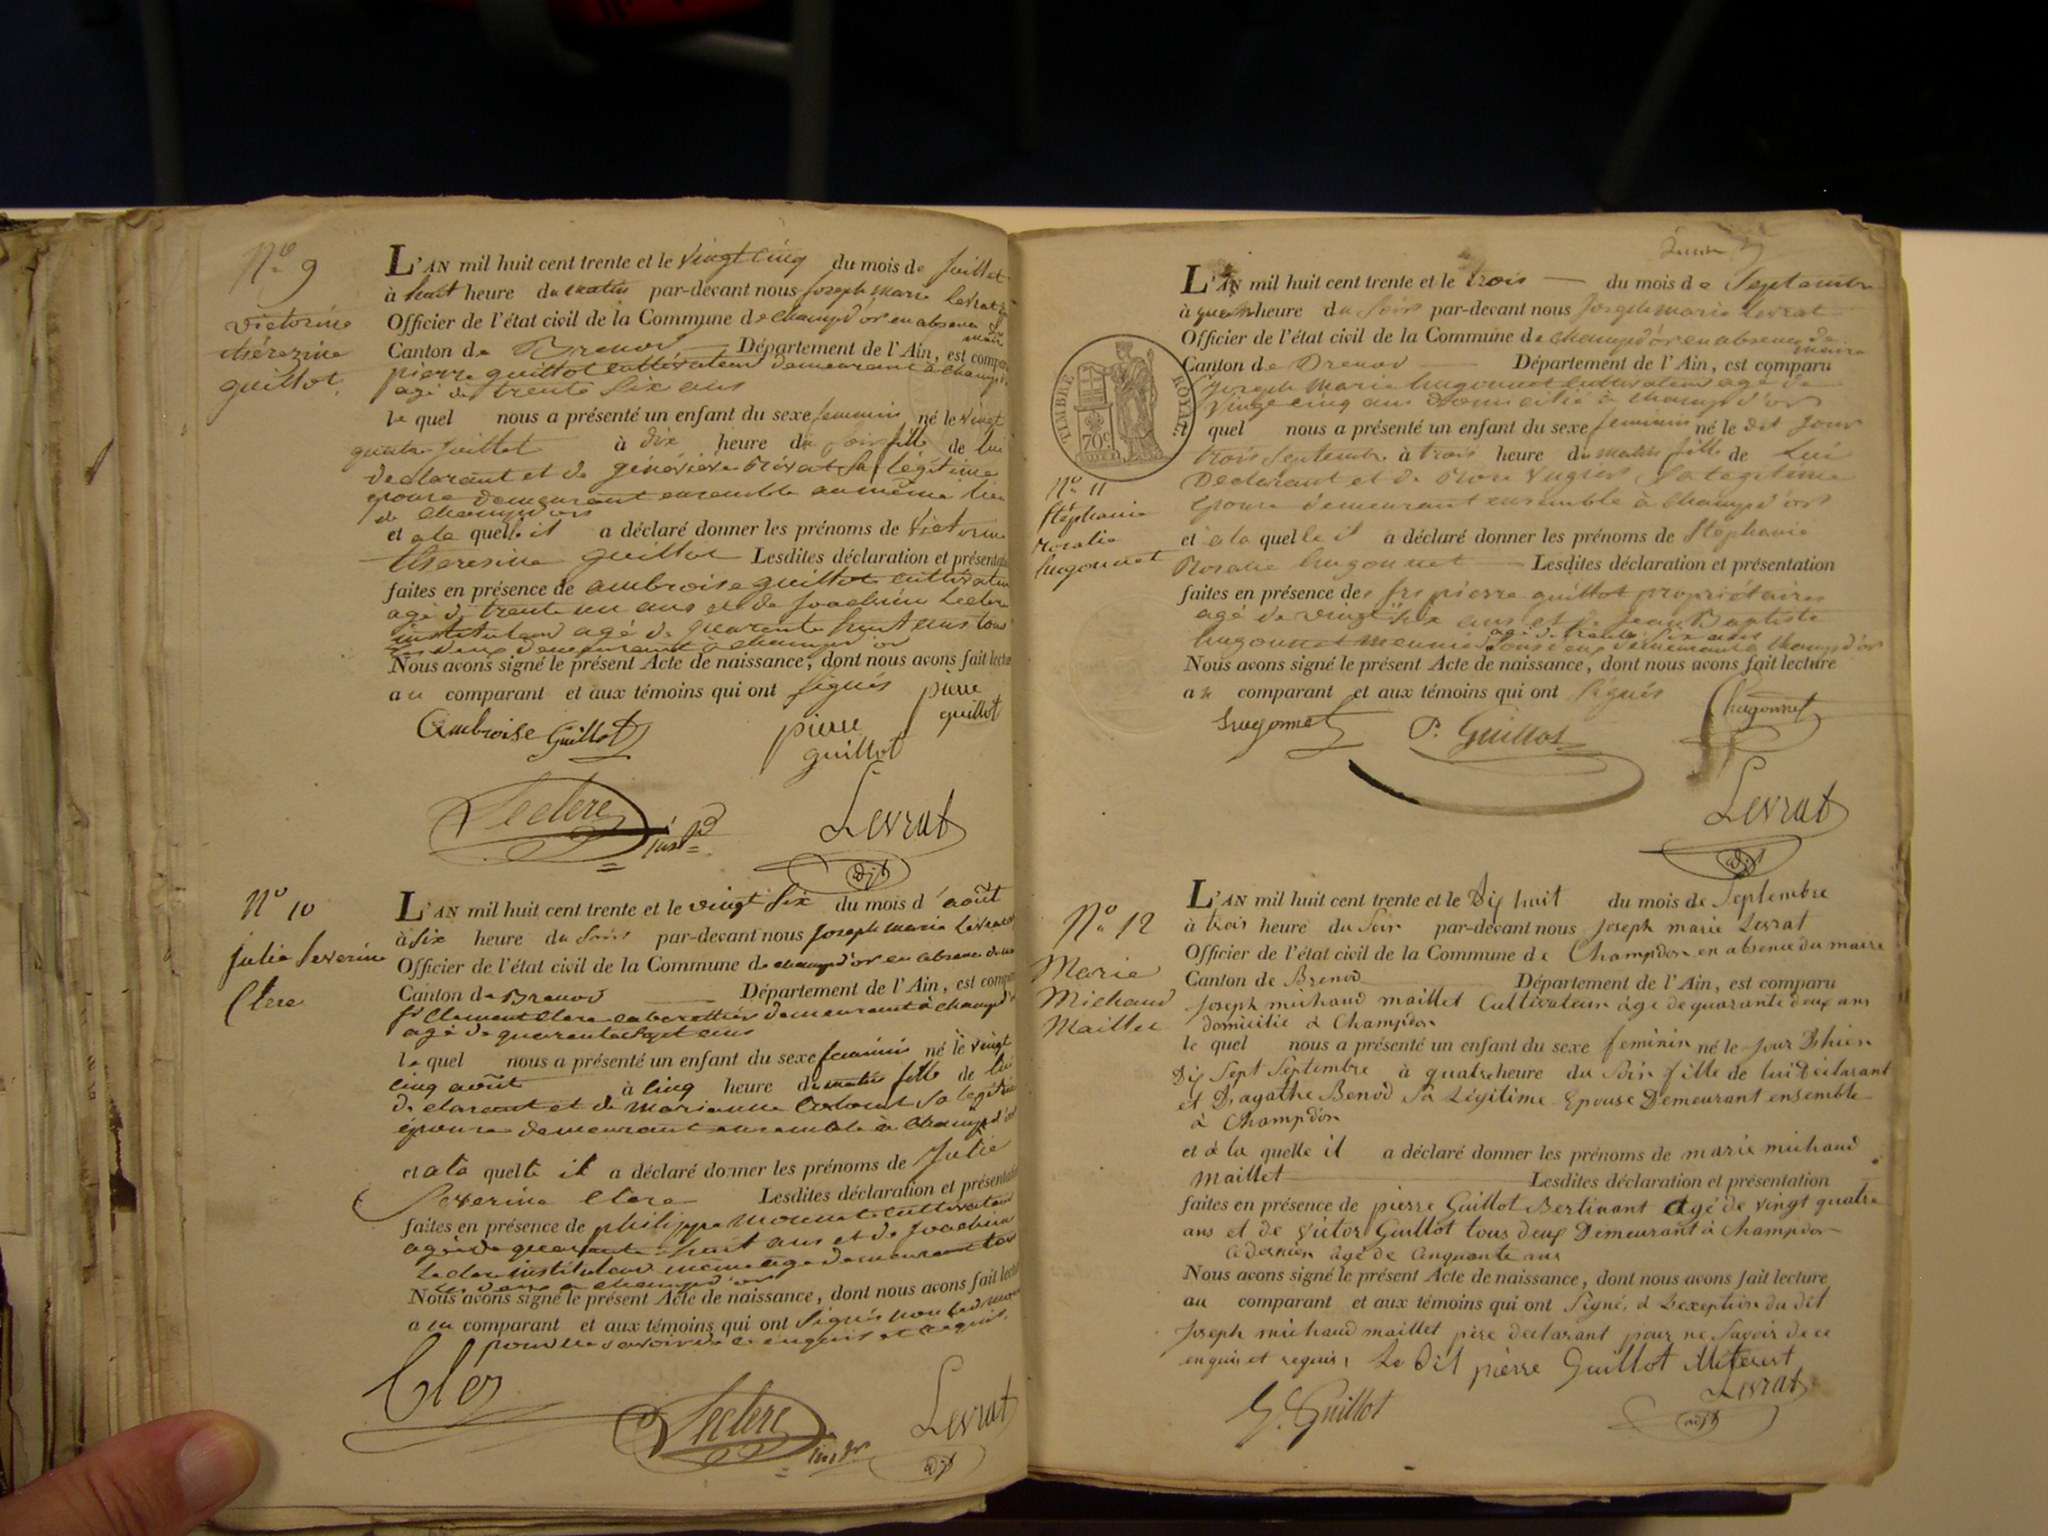 N.o 9
Victorine
thérézine
guillot.
L'AN mil huit cent trente et le vingt cinq du mois de Juillet
à huit heure du matin par-devant nous Joseph Marie Levrat
Officier de l'état civil de la Commune de Champd'or en absence du
maire
Canton de Brenod Département de l'Ain, est comparu
pierre guillot Cultivateur demeurant à Champd'or
agé de trente Six ans
le quel nous a présenté un enfant du sexe feminin né le vingt
quatre Juillet à dix heure du soir fille de lui
declarant et de généviève Sa légitime
épouse demeurant ensemble au même lieu
de Champd'or
et a la quelle il a déclaré donner les prénoms de Victorine
théresine guillot Lesdites déclaration et présentation
faites en présence de ambroise guillot cultivateur
agé de trente un ans et de Joachim Leclerc
instituteur agé de quarante huit ans tous
les deux demeurant à Champd'or
Nous avons signé le présent Acte de naissance, dont nous avons fait lecture
au comparant et aux témoins qui ont Signés
Ambroise Guillot
pierre
guillot
pierre
guillot
Leclerc
Levrat
adjt
N.o 10
Julie Severine
Clerc
L'AN mil huit cent trente et le vingt Six du mois d'août
à Six heure du Soir par-devant nous Joseph Marie Levrat
Officier de l'état civil de la Commune de Champd'or en absence du maire
Canton de Brenod Département de l'Ain, est comparu
Clement Clerc demeurant à Champd'or
agé de quarante Sept ans
le quel nous a présenté un enfant du sexe feminin né le vingt
cinq août à cinq heure du matin fille de lui
declarant et de Marianne Sa légitime
épouse demeurant ensemble à Champd'or
et a la quelle il a déclaré donner les prénoms de Julie
Severine Clerc Lesdites déclaration et présentation
faites en présence de philippe cultivateur
agé de quarante huit ans et de Joachim
Leclerc instituteur même age demeurant tous
les deux a Champd'or
Nous avons signé le présent Acte de naissance, dont nous avons fait lecture
au comparant et aux témoins qui ont Signés non led
pour ne savoir de ce enquis et requis.
Clerc
Leclerc
Levrat
adjt
TIMBRE ROYAL
70c
N.o 11
Stéphanie
rosalie
hugonnet
L'AN mil huit cent trente et le trois du mois de Septembre
à quatre heure du Soir par-devant nous Joseph Marie Levrat
Officier de l'état civil de la Commune de Champd'or en absence du
maire
Canton de Brenod Département de l'Ain, est comparu
Joseph Marie hugonnet cultivateur agé de
vingt cinq ans domicilié à Champd'or
quel nous a présenté un enfant du sexe feminin né le dit Jour
trois Septembre à trois heure du matin fille de Lui
Declarant et de Sa legitime
Epouse demeurant ensemble à Champd'or
et a la quelle il a déclaré donner les prénoms de Stéphanie
Rosalie hugonnet Lesdites déclaration et présentation
faites en présence de pierre guillot propriétaire
agé de vingt Six ans et de Jean Baptiste
agé de trente Six ans
hugonnet tous deux demeurant à Champd'or
Nous avons signé le présent Acte de naissance, dont nous avons fait lecture
au comparant et aux témoins qui ont Signés
hugonnet
P. Guillot
hugonnet
Levrat
adjt
N.o 12
Marie
Michaud
Maillet
L'AN mil huit cent trente et le Dix huit du mois de Septembre
à trois heure du Soir par-devant nous Joseph marie Levrat
Officier de l'état civil de la Commune de Champdor en absence du maire
Canton de Brenod Département de l'Ain, est comparu
Joseph michaud maillet Cultivateur âgé de quarante deux ans
domicilié à Champdor
le quel nous a présenté un enfant du sexe feminin né le Jour D'hier
Dix Sept Septembre à quatre heure du Soir fille de lui Déclarant
et D'agathe Benod Sa Légitime Epouse Demeurant ensemble
à Champdor
et à la quelle il a déclaré donner les prénoms de marie michaud
maillet Lesdites déclaration et présentation
faites en présence de pierre Guillot Berlinant agé de vingt quatre
ans et de Victor Guillot tous deux Demeurant à Champdor
dernier âgé de Cinquante ans
Nous avons signé le présent Acte de naissance, dont nous avons fait lecture
au comparant et aux témoins qui ont Signé, à L'exeption du dit
Joseph michaud maillet père declarant pour ne Savoir de ce
enquis et requis, Le Dit pierre Guillot
Levrat
adjt
Guillot